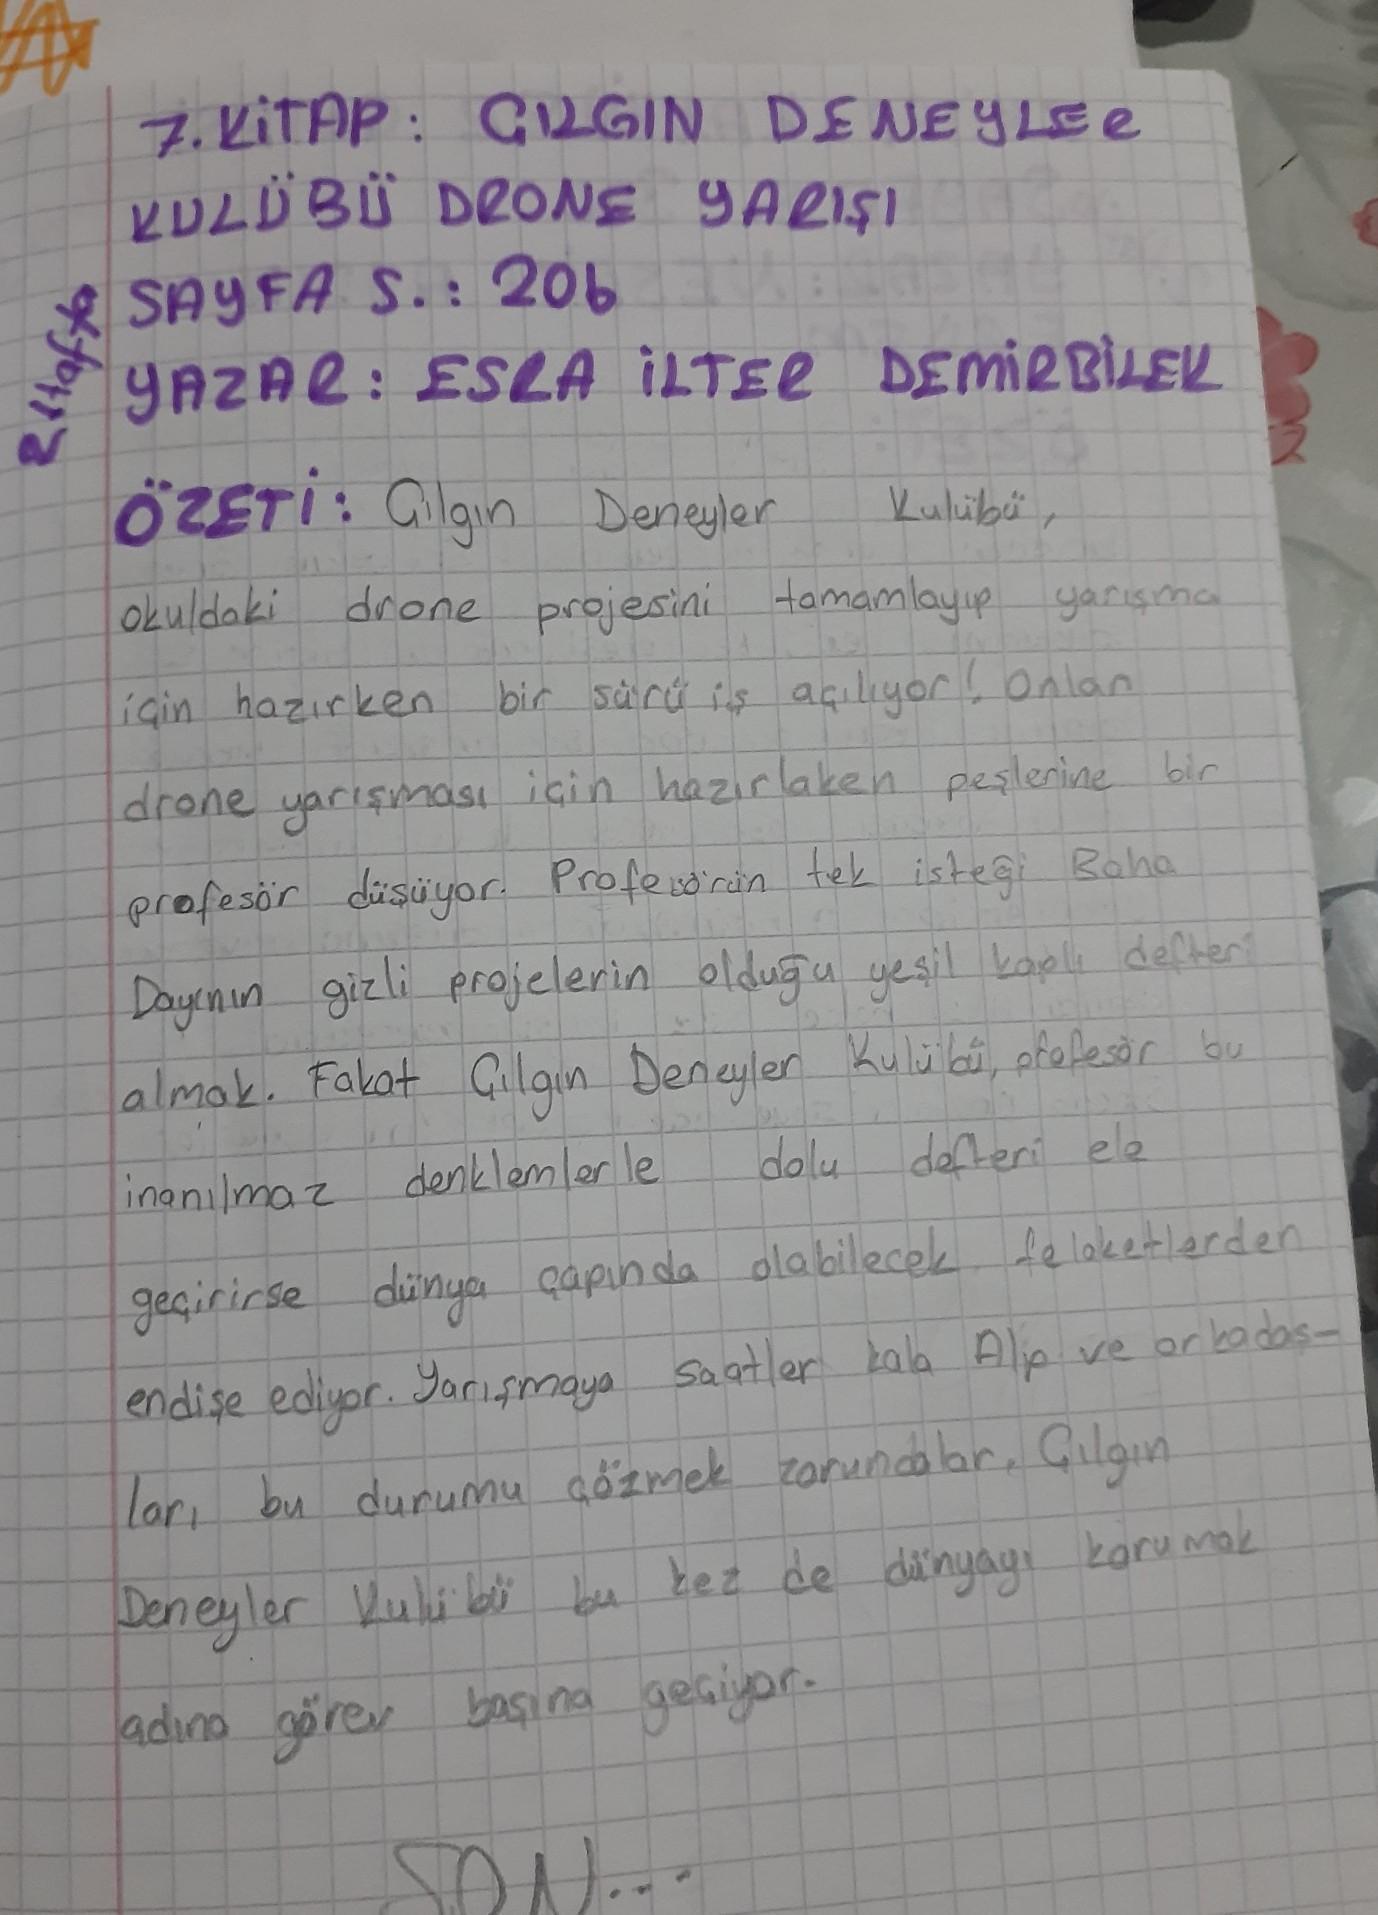 7. KİTAP: ÇILGIN DENEYLER
KULÜBÜ DRONE YARIŞI
SAYFA S.: 206
YAZAR: ESRA İLTER DEMİRBİLEK
ÖZETİ: Çılgın Deneyler Kulübü,
okuldaki drone projesini tamamlayıp yarışma
için hazırken bir sürü iş açılıyor! Onları
drone yarışması için hazırlaken peşlerine bir
profesör düşüyor. Profesörün tek isteği Baha
Dayının gizli projelerin olduğu yeşil kaplı defteri
almak. Fakat Çılgın Deneyler Kulübü, profesör bu
inanılmaz denklemlerle dolu defteri ele
geçirirse dünya çapında olabilecek felaketlerden
endişe ediyor. Yarışmaya saatler kala Alp ve arkadaş-
ları bu durumu çözmek zorundalar. Çılgın
Deneyler Kulübü bu kez de dünyayı korumak
adına görev başına geçiyor.
SON...